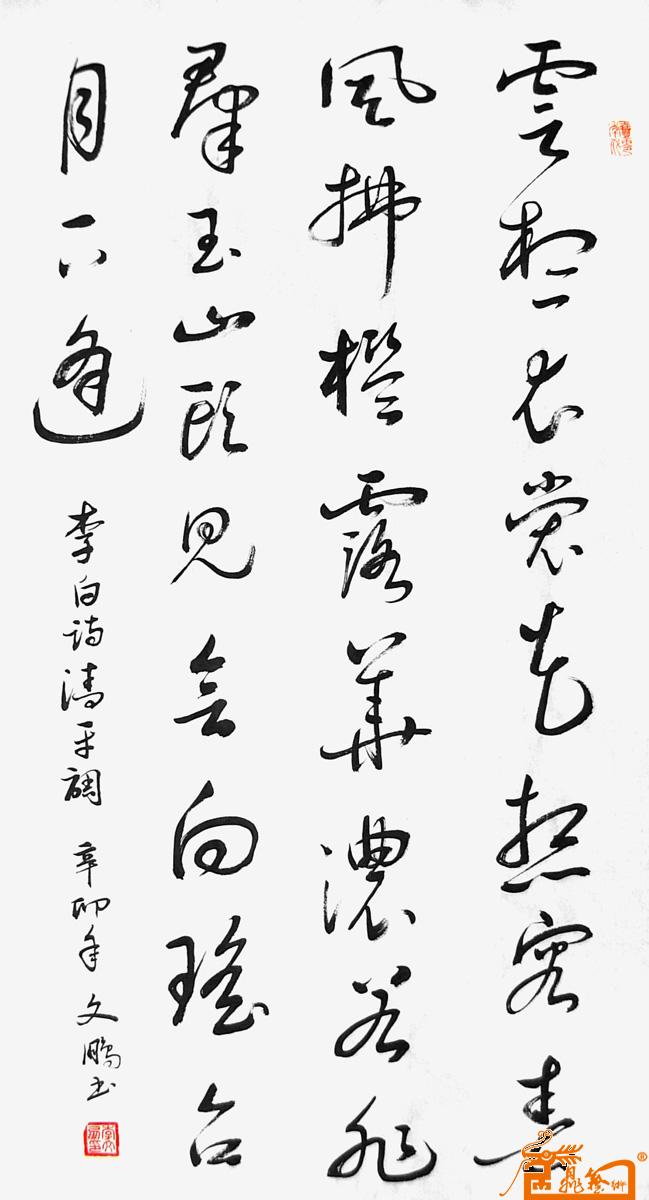 雲想衣裳花想容春
風拂檻露華濃若非
羣玉山頭見會向瑤台
月下逢
李白詩清平調 辛卯年 文鵬書